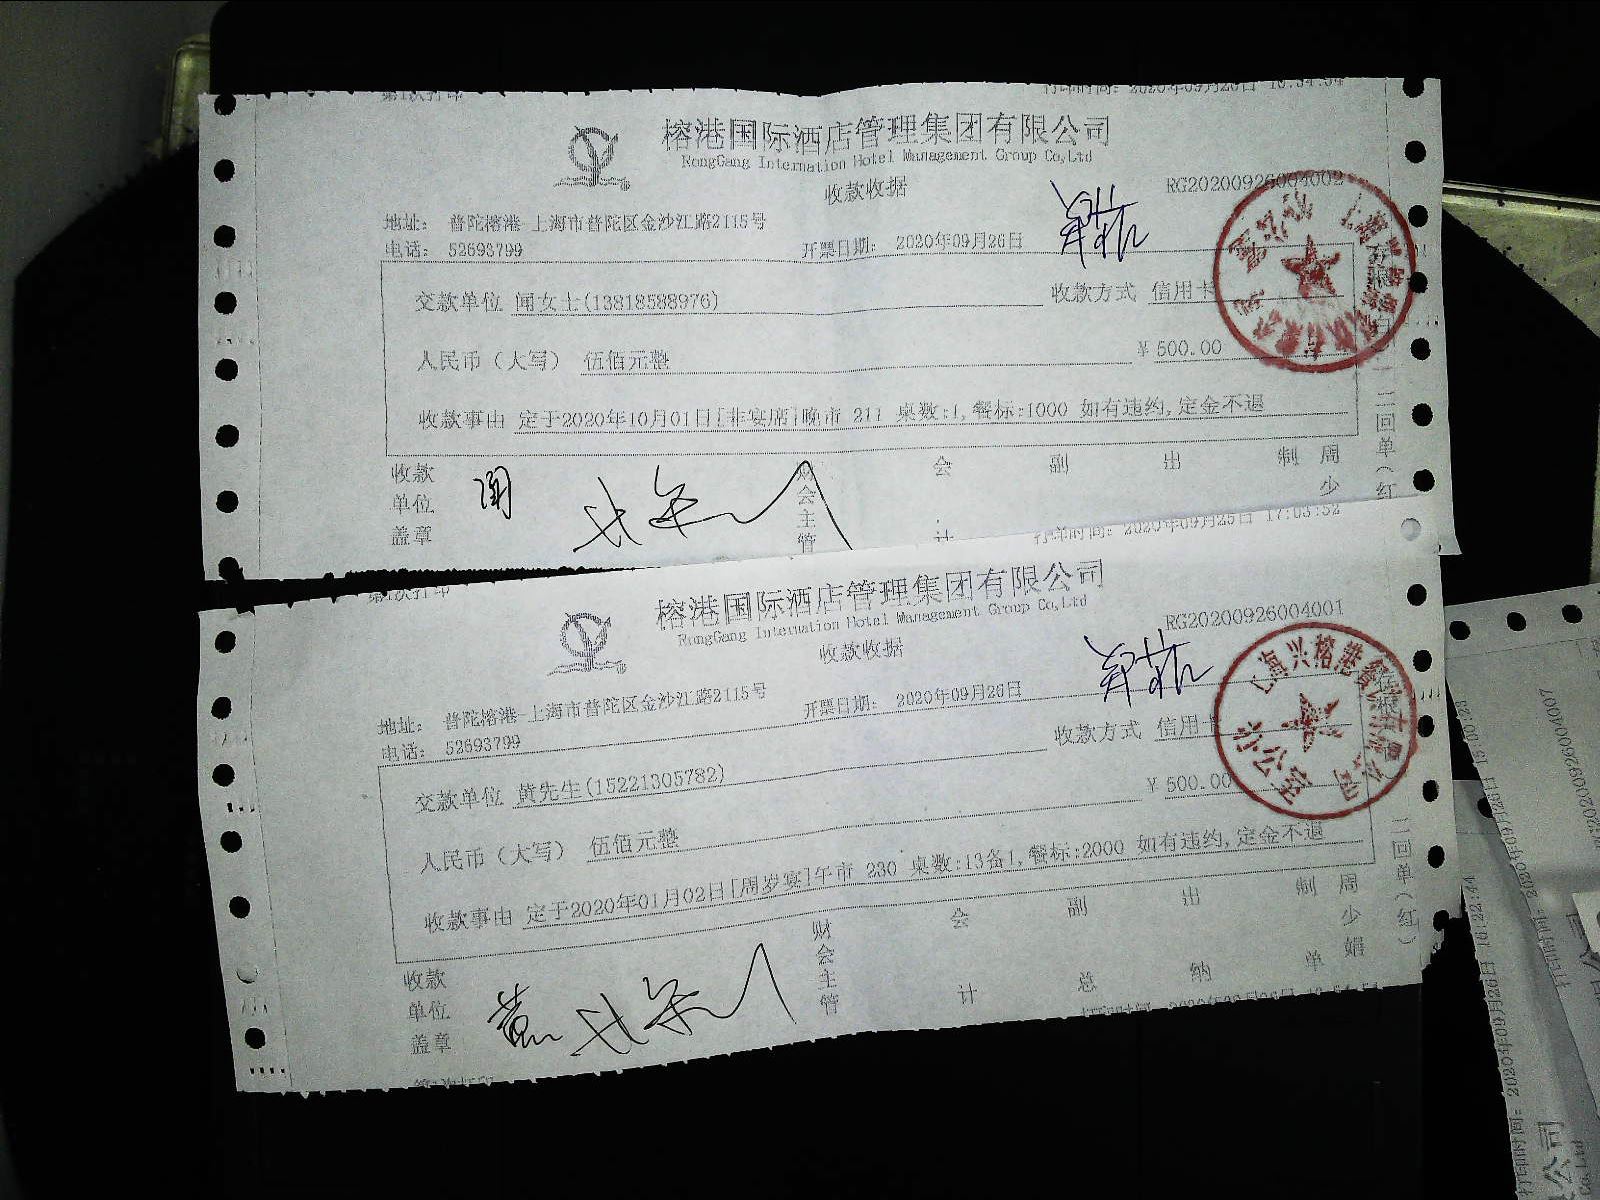 榕港国际酒店管理集团有限公司
RongGang Internation Hotel Management Group Co,Ltd
收款收据
RG20200926004002
地址： 普陀榕港-上海市普陀区金沙江路2115号
电话： 52693799
开票日期： 2020年09月26日
交款单位 闻女士(13818588976)
收款方式 信用卡
人民币（大写） 伍佰元整
¥ 500.00
收款事由 定于2020年10月01日[非宴席]晚市 211 桌数:1,餐标:1000 如有违约,定金不退
二回单（红
收款单位盖章
闻
财会主管
会计
副
出
制
周少
第1次打印
打印时间: 2020年09月25日 17:03:52
榕港国际酒店管理集团有限公司
RongGang Internation Hotel Management Group Co,Ltd
收款收据
RG20200926004001
地址： 普陀榕港-上海市普陀区金沙江路2115号
电话： 52693799
开票日期： 2020年09月26日
交款单位 黄先生(15221305782)
收款方式 信用卡
人民币（大写） 伍佰元整
¥ 500.00
收款事由 定于2020年01月02日[周岁宴]午市 230 桌数:13备1,餐标:2000 如有违约,定金不退
二回单（红）
收款单位盖章
黄
财会主管
会计
副总
出纳
制单
周少娟